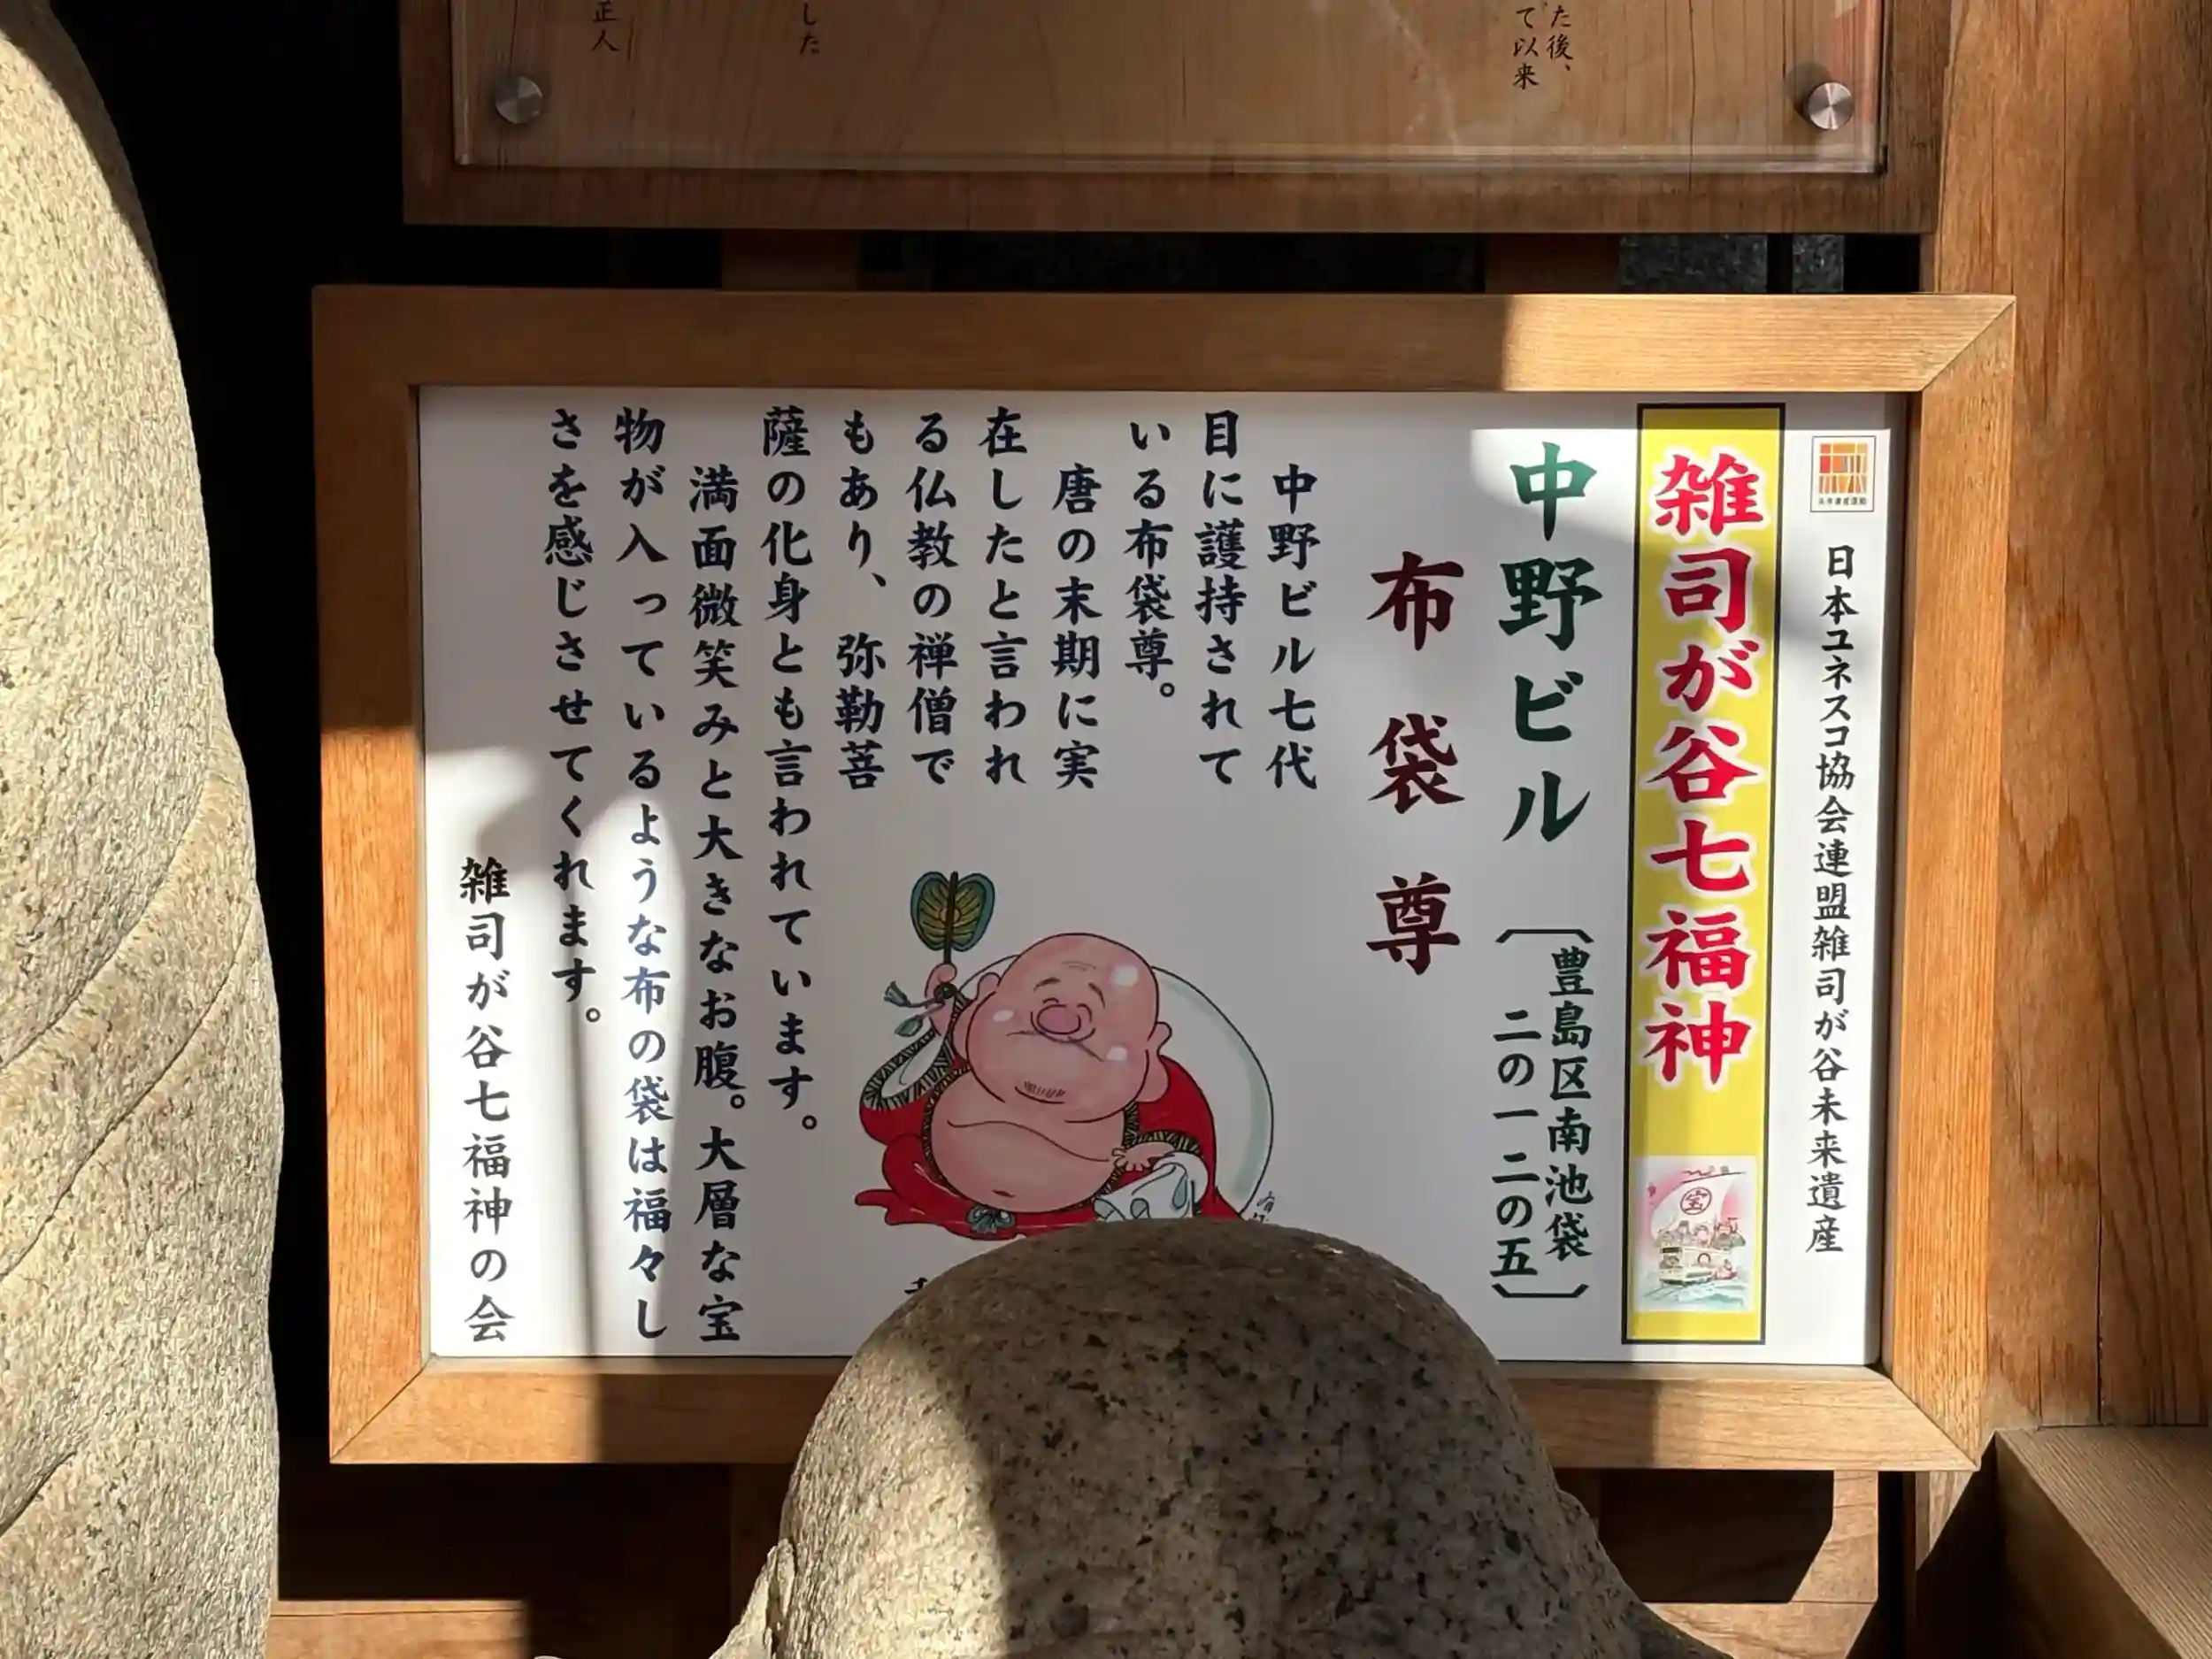 た後、
て以来
した
正人
日本ユネスコ協会連盟雑司が谷未来遺産
雑司が谷七福神
宝
中野ビル
〔豊島区南池袋
二の一二の五〕
布袋尊
中野ビル七代
目に護持されて
いる布袋尊。
唐の末期に実
在したと言われ
る仏教の禅僧で
もあり、弥勒菩
薩の化身とも言われています。
満面微笑みと大きなお腹。大層な宝
物が入っているような布の袋は福々し
さを感じさせてくれます。
雑司が谷七福神の会